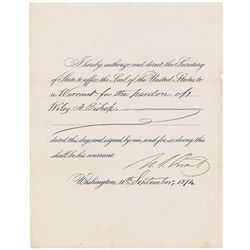 I hereby authorize and direct the Secretary
of State to affix the Seal of the United States to
a Warrant for the pardon of
Wiley A. Bishop,
dated this day, and signed by me, and for so doing this
shall be his warrant.
U. S. Grant
Washington, 11th September, 1874